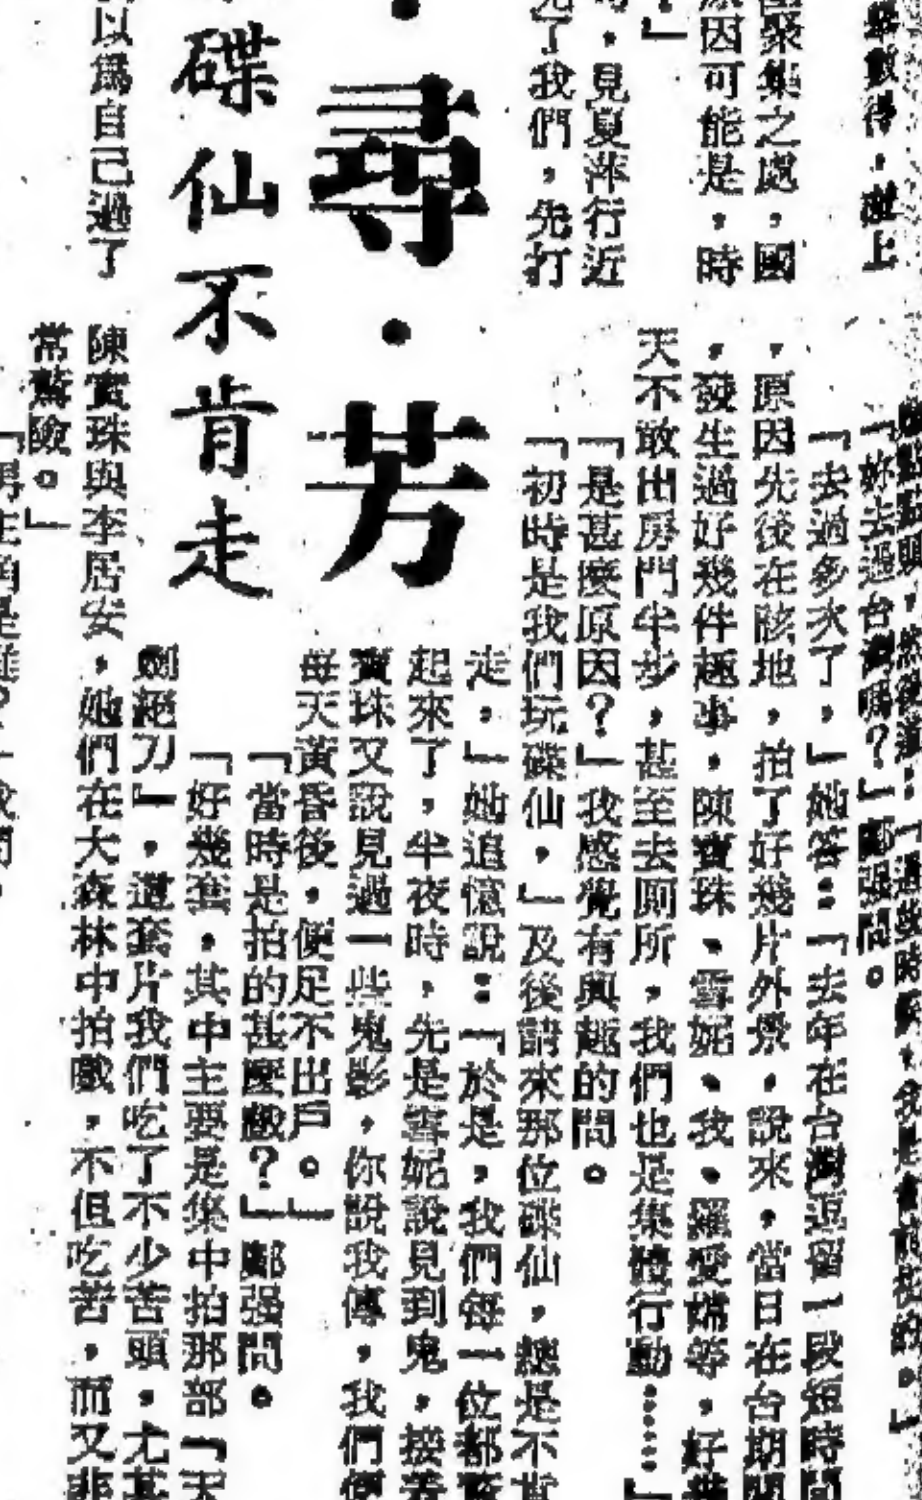 聚集之處，國
原因可能是，時
。」
，見夏萍行近
了我們，先打
尋·芳
碟仙不肯走
以爲自己過了
「好去過台灣嗎？」鄭强問。
「去過多次了，」她答：「去年在台灣逗留一段短時間
，原因先後在該地，拍了好幾片外景，說來，當日在台期間
，發生過好幾件趣事，陳寶珠、雪妮、我、羅愛嫦等，好幾
天不敢出房門半步，甚至去厠所，我們也是集體行動……」
「是甚麼原因？」我感覺有興趣的問。
「初時是我們玩碟仙，」及後請來那位碟仙，總是不肯
走，」她追憶說：「於是，我們每一位都驚
起來了，半夜時，先是雪妮說見到鬼，接着
寶珠又說見過一些鬼影，你說我傳，我們便
每天黃昏後，便足不出戶。」
「當時是拍的甚麼戲？」鄭强問。
「好幾套，其中主要是集中拍那部「天
劍絕刀」，這套片我們吃了不少苦頭，尤其
陳寶珠與李居安，她們在大森林中拍戲，不但吃苦，而又非
常驚險。」
「男主角是誰？」我問，